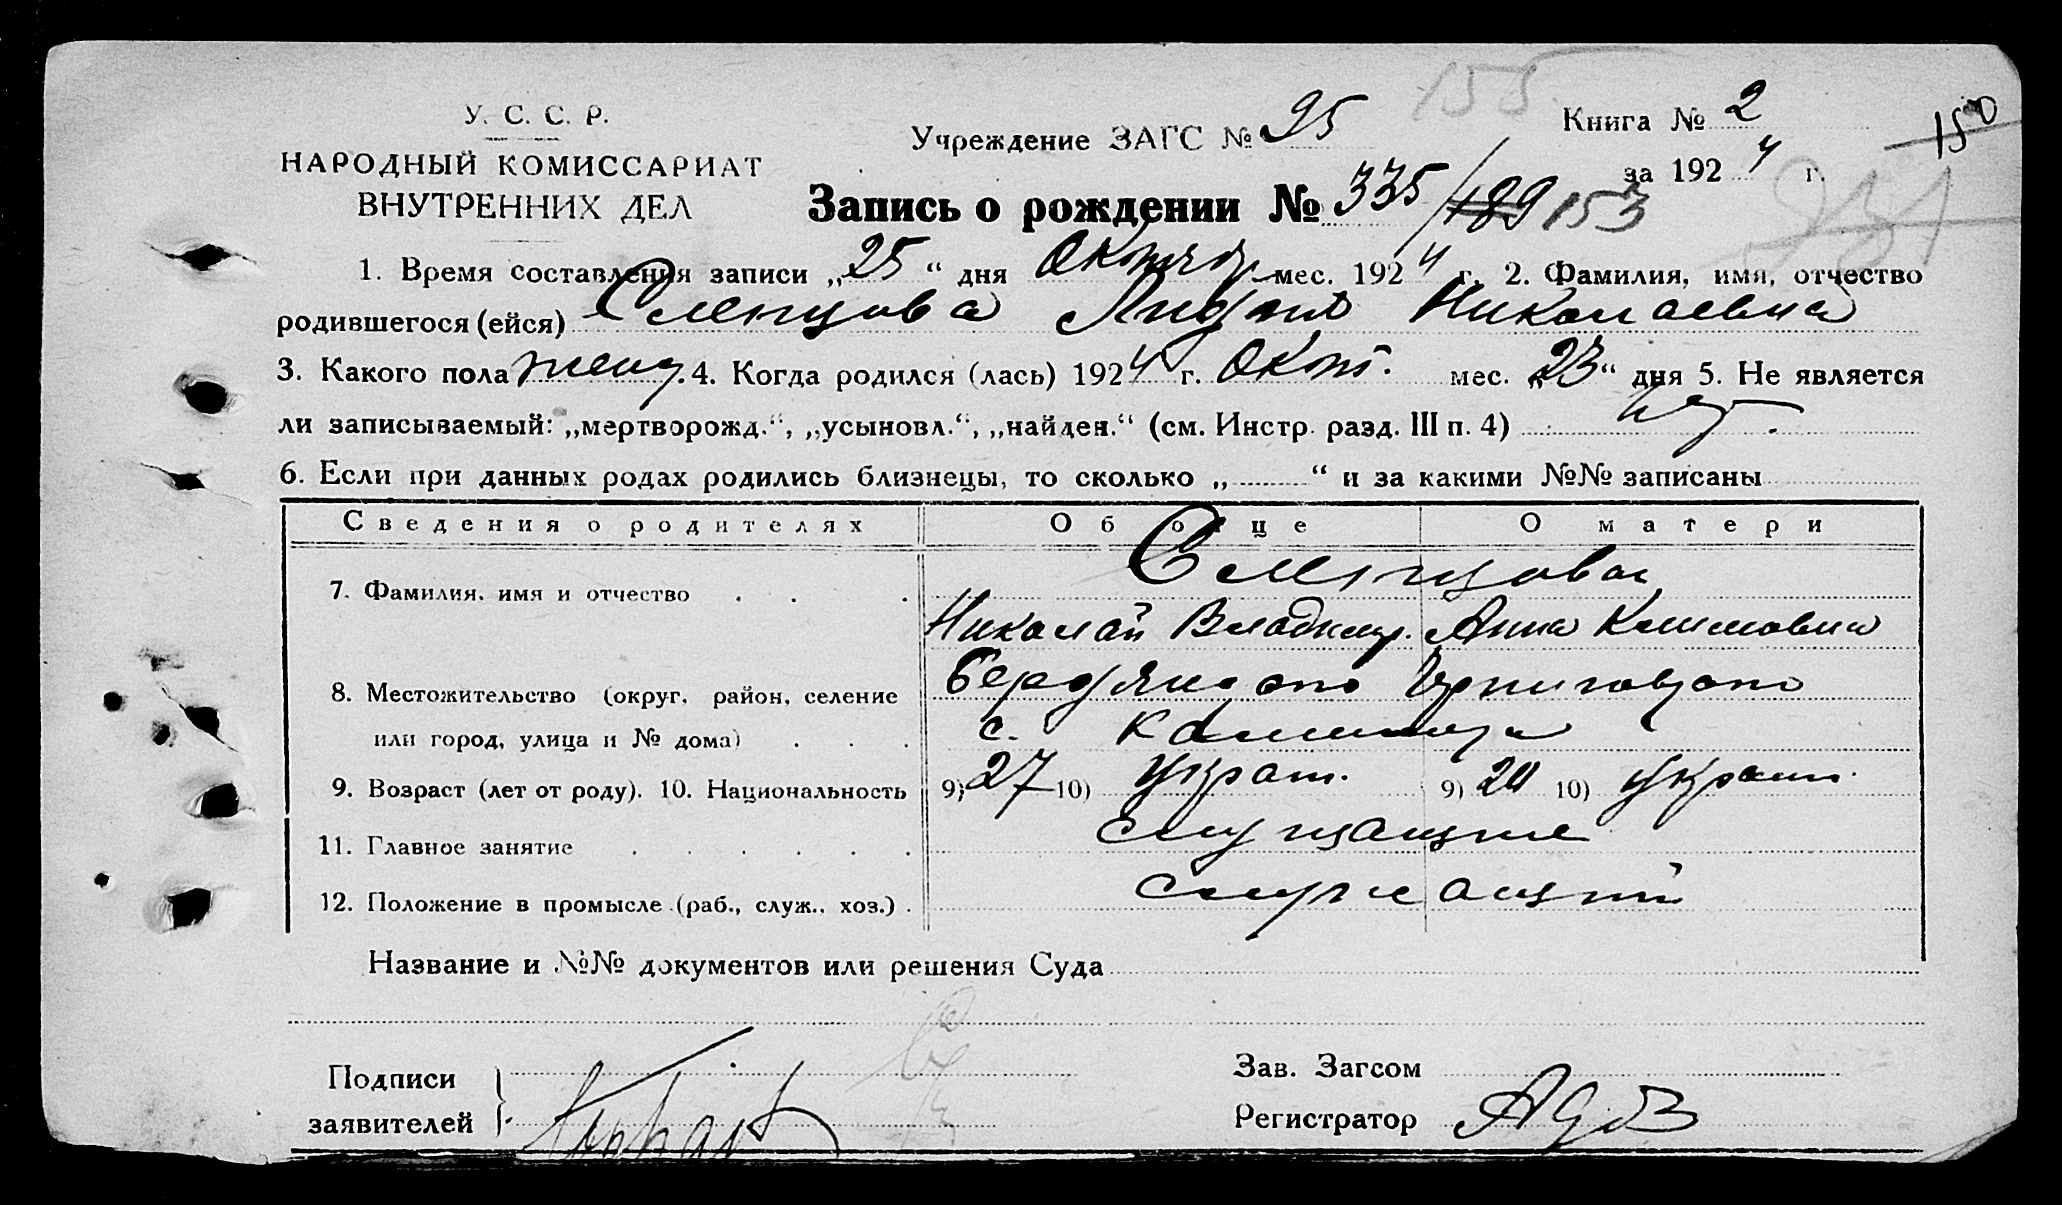 155
У. С. С. Р.
НАРОДНЫЙ КОМИССАРИАТ
ВНУТРЕННИХ ДЕЛ
Учреждение ЗАГС № 25
Книга № 2
150
за 1924 г.
Запись о рождении № 335/189 153
1. Время составления записи „25“ дня Октябр. мес. 1924 г. 2. Фамилия, имя, отчество
родившегося (ейся) Слепцова Лидия Николаевна
3. Какого пола женс. 4. Когда родился (лась) 1924 г. Окт. мес. „23“ дня 5. Не является
ли записываемый: „мертворожд.“, „усыновл.“, „найден.“ (см. Инстр. разд. III п. 4) нет.
6. Если при данных родах родились близнецы, то сколько „ “ и за какими №№ записаны
Сведения о родителях Об отце О матери
7. Фамилия, имя и отчество . . . Слепцовы
Николай Владимир. Анна Климовна
8. Местожительство (округ, район, селение Бердянского Черниговского
или город, улица и № дома) . . . с.
9. Возраст (лет от роду). 10. Национальность 9) 27 10) украин. 9) 20 10) украин.
11. Главное занятие . . . . . . служащие
12. Положение в промысле (раб., служ., хоз.) . служащий
Название и №№ документов или решения Суда
Подписи
заявителей
Зав. Загсом
Регистратор